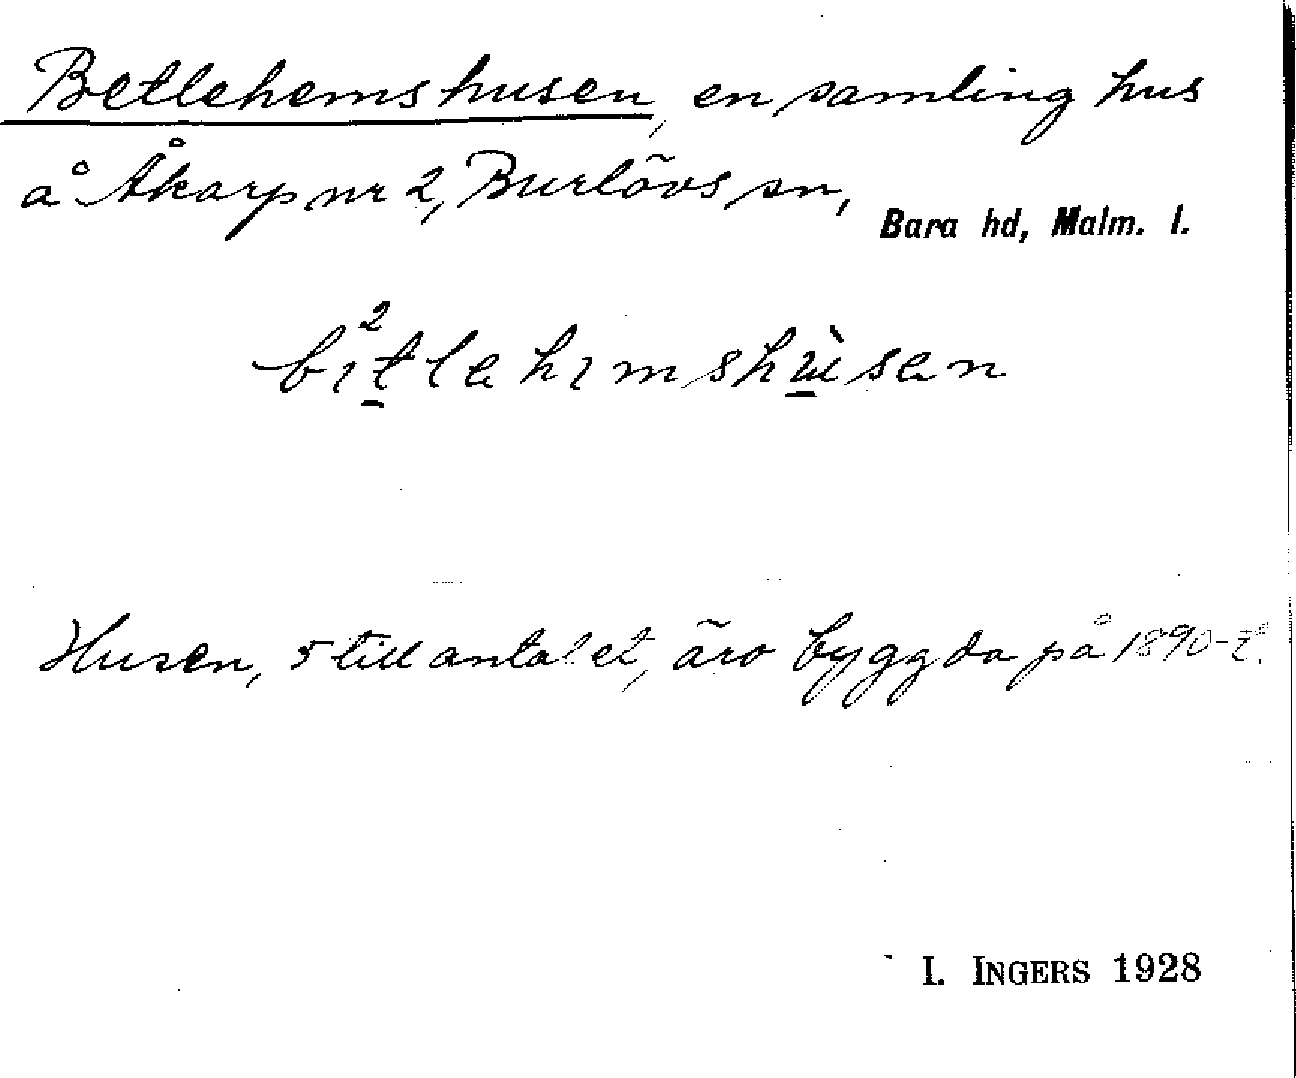 Betlehemshusen, en samling hus
å Åkarp nr 2, Burlövs sn,
Bara hd, Malm. l.
Husen, 5 till antalet, äro byggda på 1890-t.
I. INGERS 1928